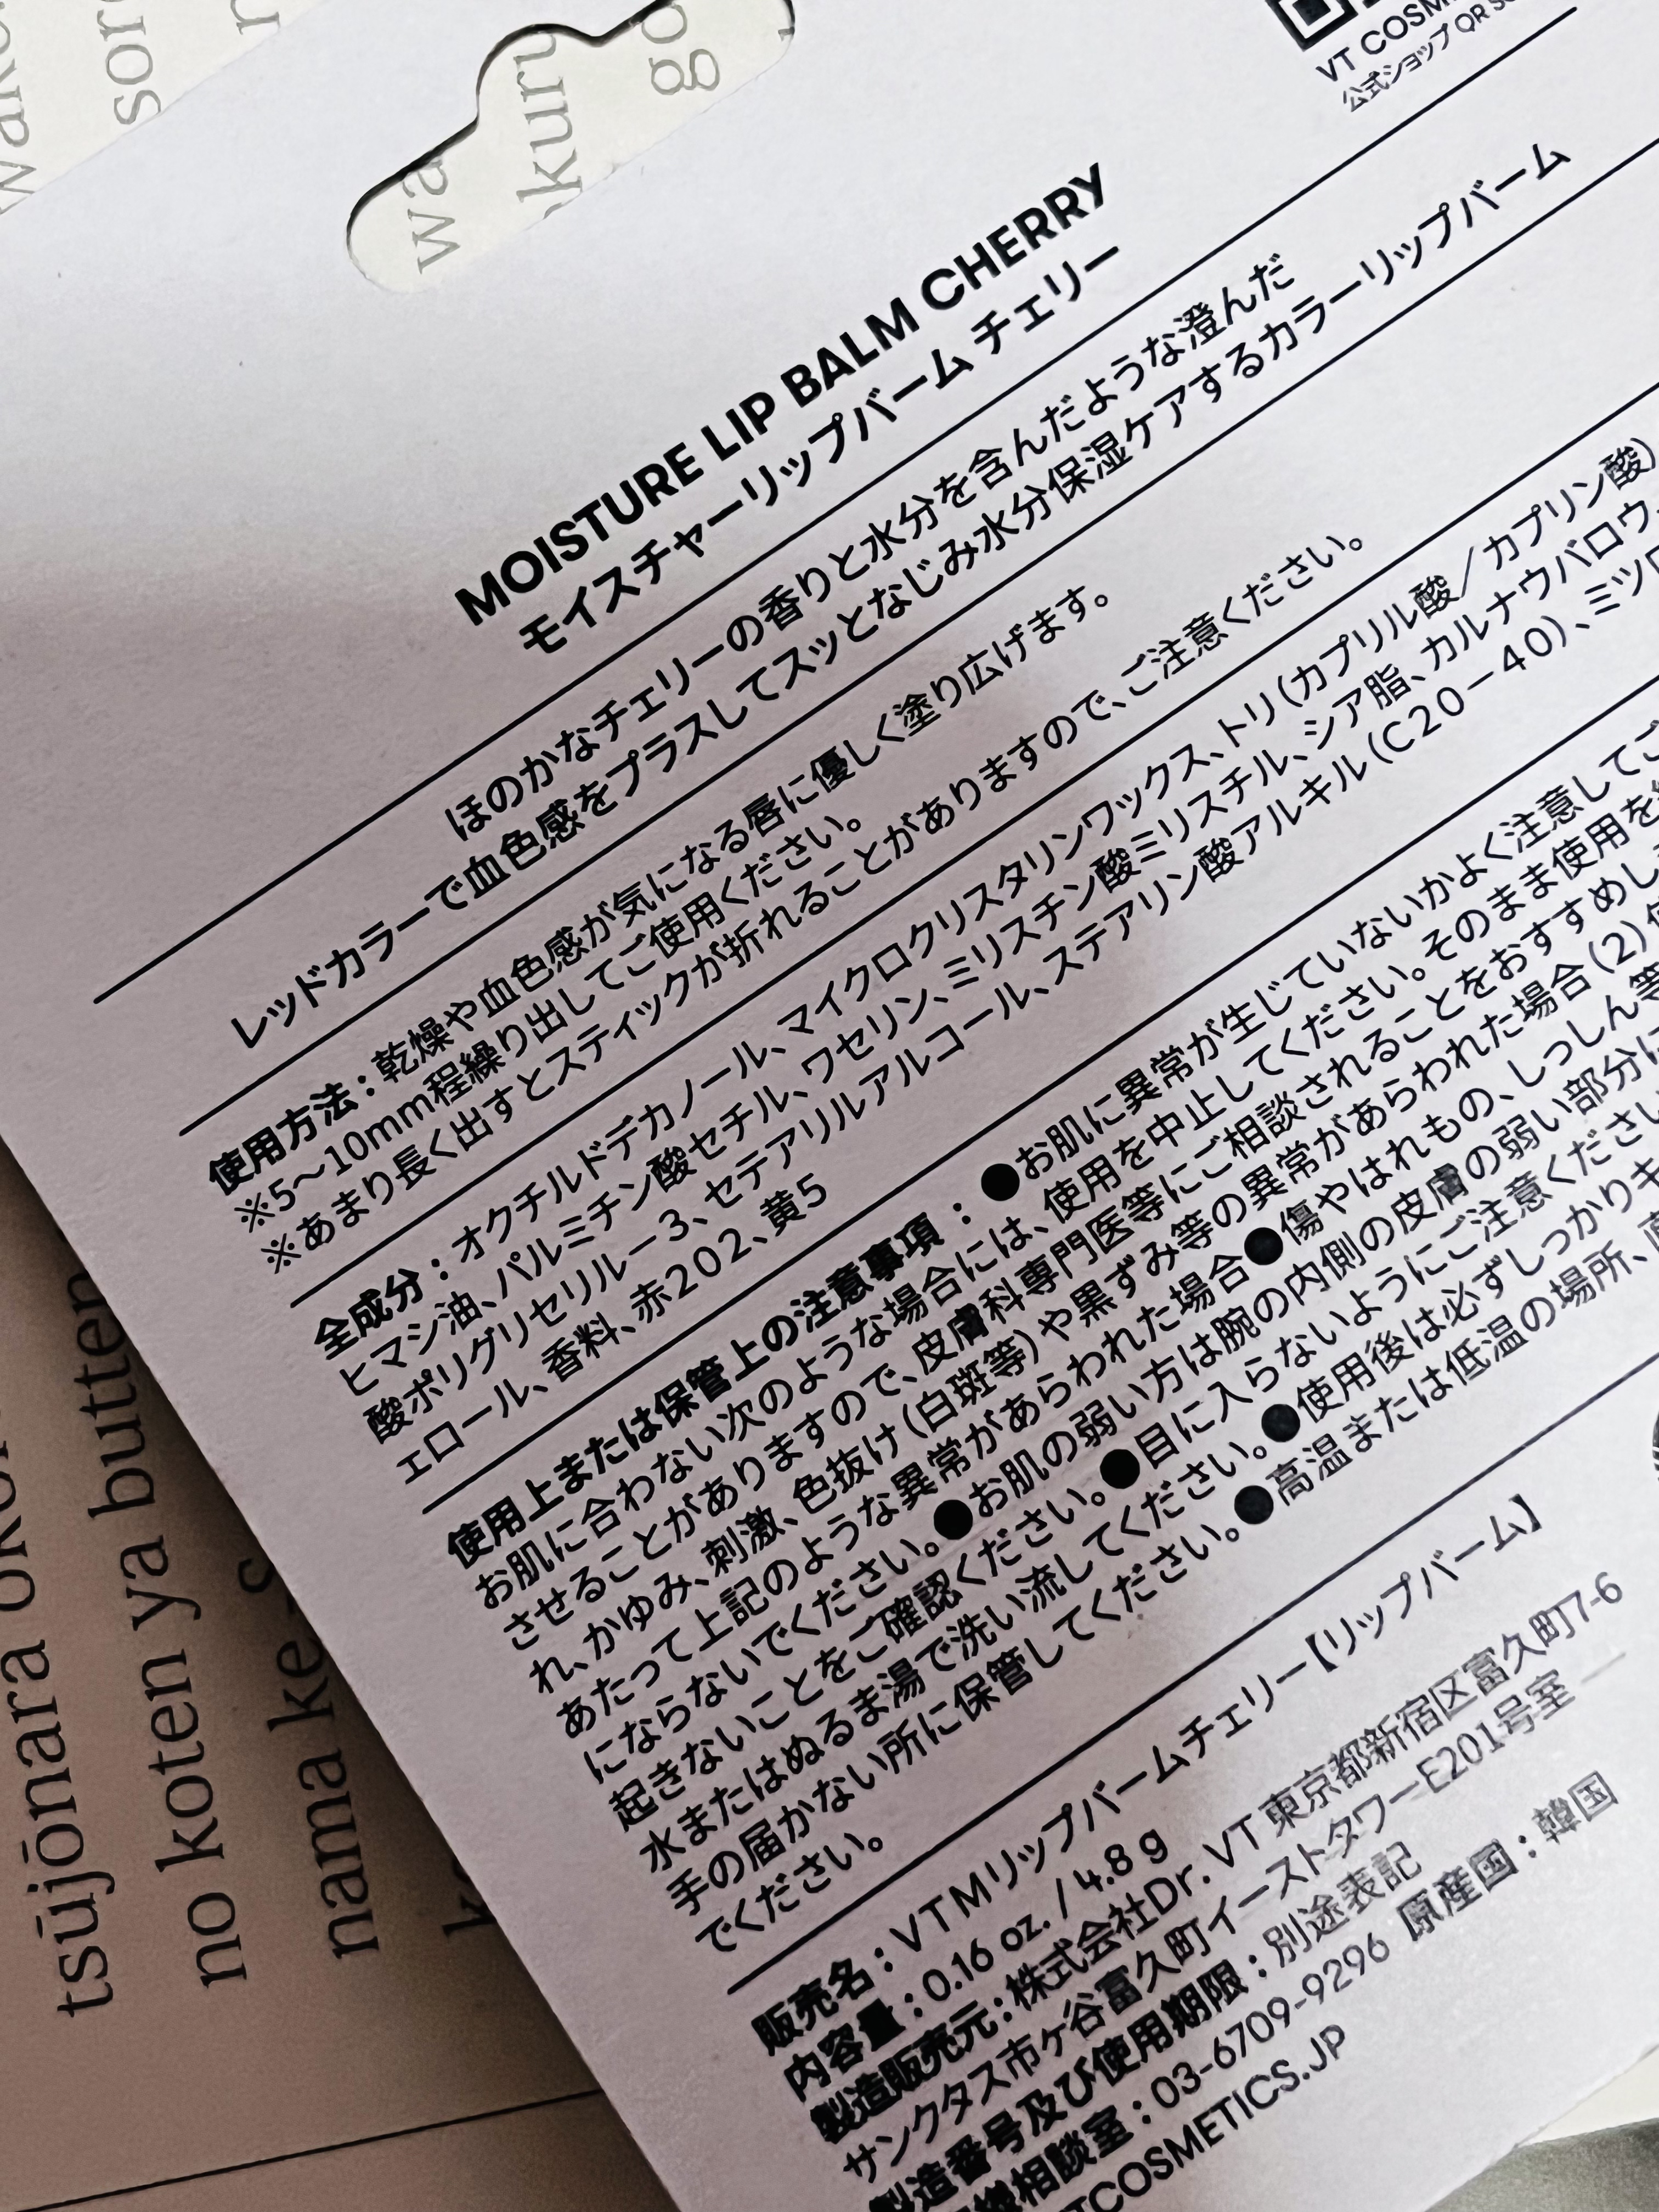 VT COSM
公式ショップ QR
MOISTURE LIP BALM CHERRY
モイスチャーリップバーム チェリー
ほのかなチェリーの香りと水分を含んだような澄んだ
レッドカラーで血色感をプラスしてスッとなじみ水分保湿ケアするカラーリップバーム
使用方法：乾燥や血色感が気になる唇に優しく塗り広げます。
※5〜10mm程繰り出してご使用ください。
※あまり長く出すとスティックが折れることがありますので、ご注意ください。
全成分：オクチルドデカノール、マイクロクリスタリンワックス、トリ（カプリル酸／カプリン酸）
ヒマシ油、パルミチン酸セチル、ワセリン、ミリスチン酸ミリスチル、シア脂、カルナウバロウ、
酸ポリグリセリル－3、セテアリルアルコール、ステアリン酸アルキル（C20－40）、ミツロ
ェロール、香料、赤202、黄5
使用上または保管上の注意事項：●お肌に異常が生じていないかよく注意してご
お肌に合わない次のような場合には、使用を中止してください。そのまま使用を
させることがありますので、皮膚科専門医等にご相談されることをおすすめし
れ、かゆみ、刺激、色抜け（白斑等）や黒ずみ等の異常があらわれた場合（2）
あたって上記のような異常があらわれた場合●傷やはれもの、しっしん等
にならないでください。●お肌の弱い方は腕の内側の皮膚の弱い部分に
起きないことをご確認ください。●目に入らないようにご注意ください
水またはぬるま湯で洗い流してください。●使用後は必ずしっかりキ
手の届かない所に保管してください。●高温または低温の場所、直
でください。
販売名：VTMリップバームチェリー【リップバーム】
内容量：0.16 oz. / 4.8 g
製造販売元：株式会社Dr. VT 東京都新宿区富久町7-6
サンクタス市ヶ谷富久町イーストタワーE201号室
製造番号及び使用期限：別途表記
相談室：03-6709-9296 原産国：韓国
TCOSMETICS.JP
wa
kuru
go
sor
tsūjōnara
no koten ya butten
nama ke